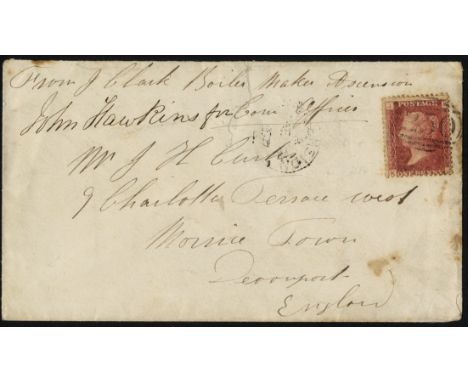 From J Clark Boiler Maker Ascension
John Hawkins for Com Officer
Mr J H Clark
9 Charlotte Terrace west
Morice Town
Devonport
England
POSTAGE
ONE PENNY